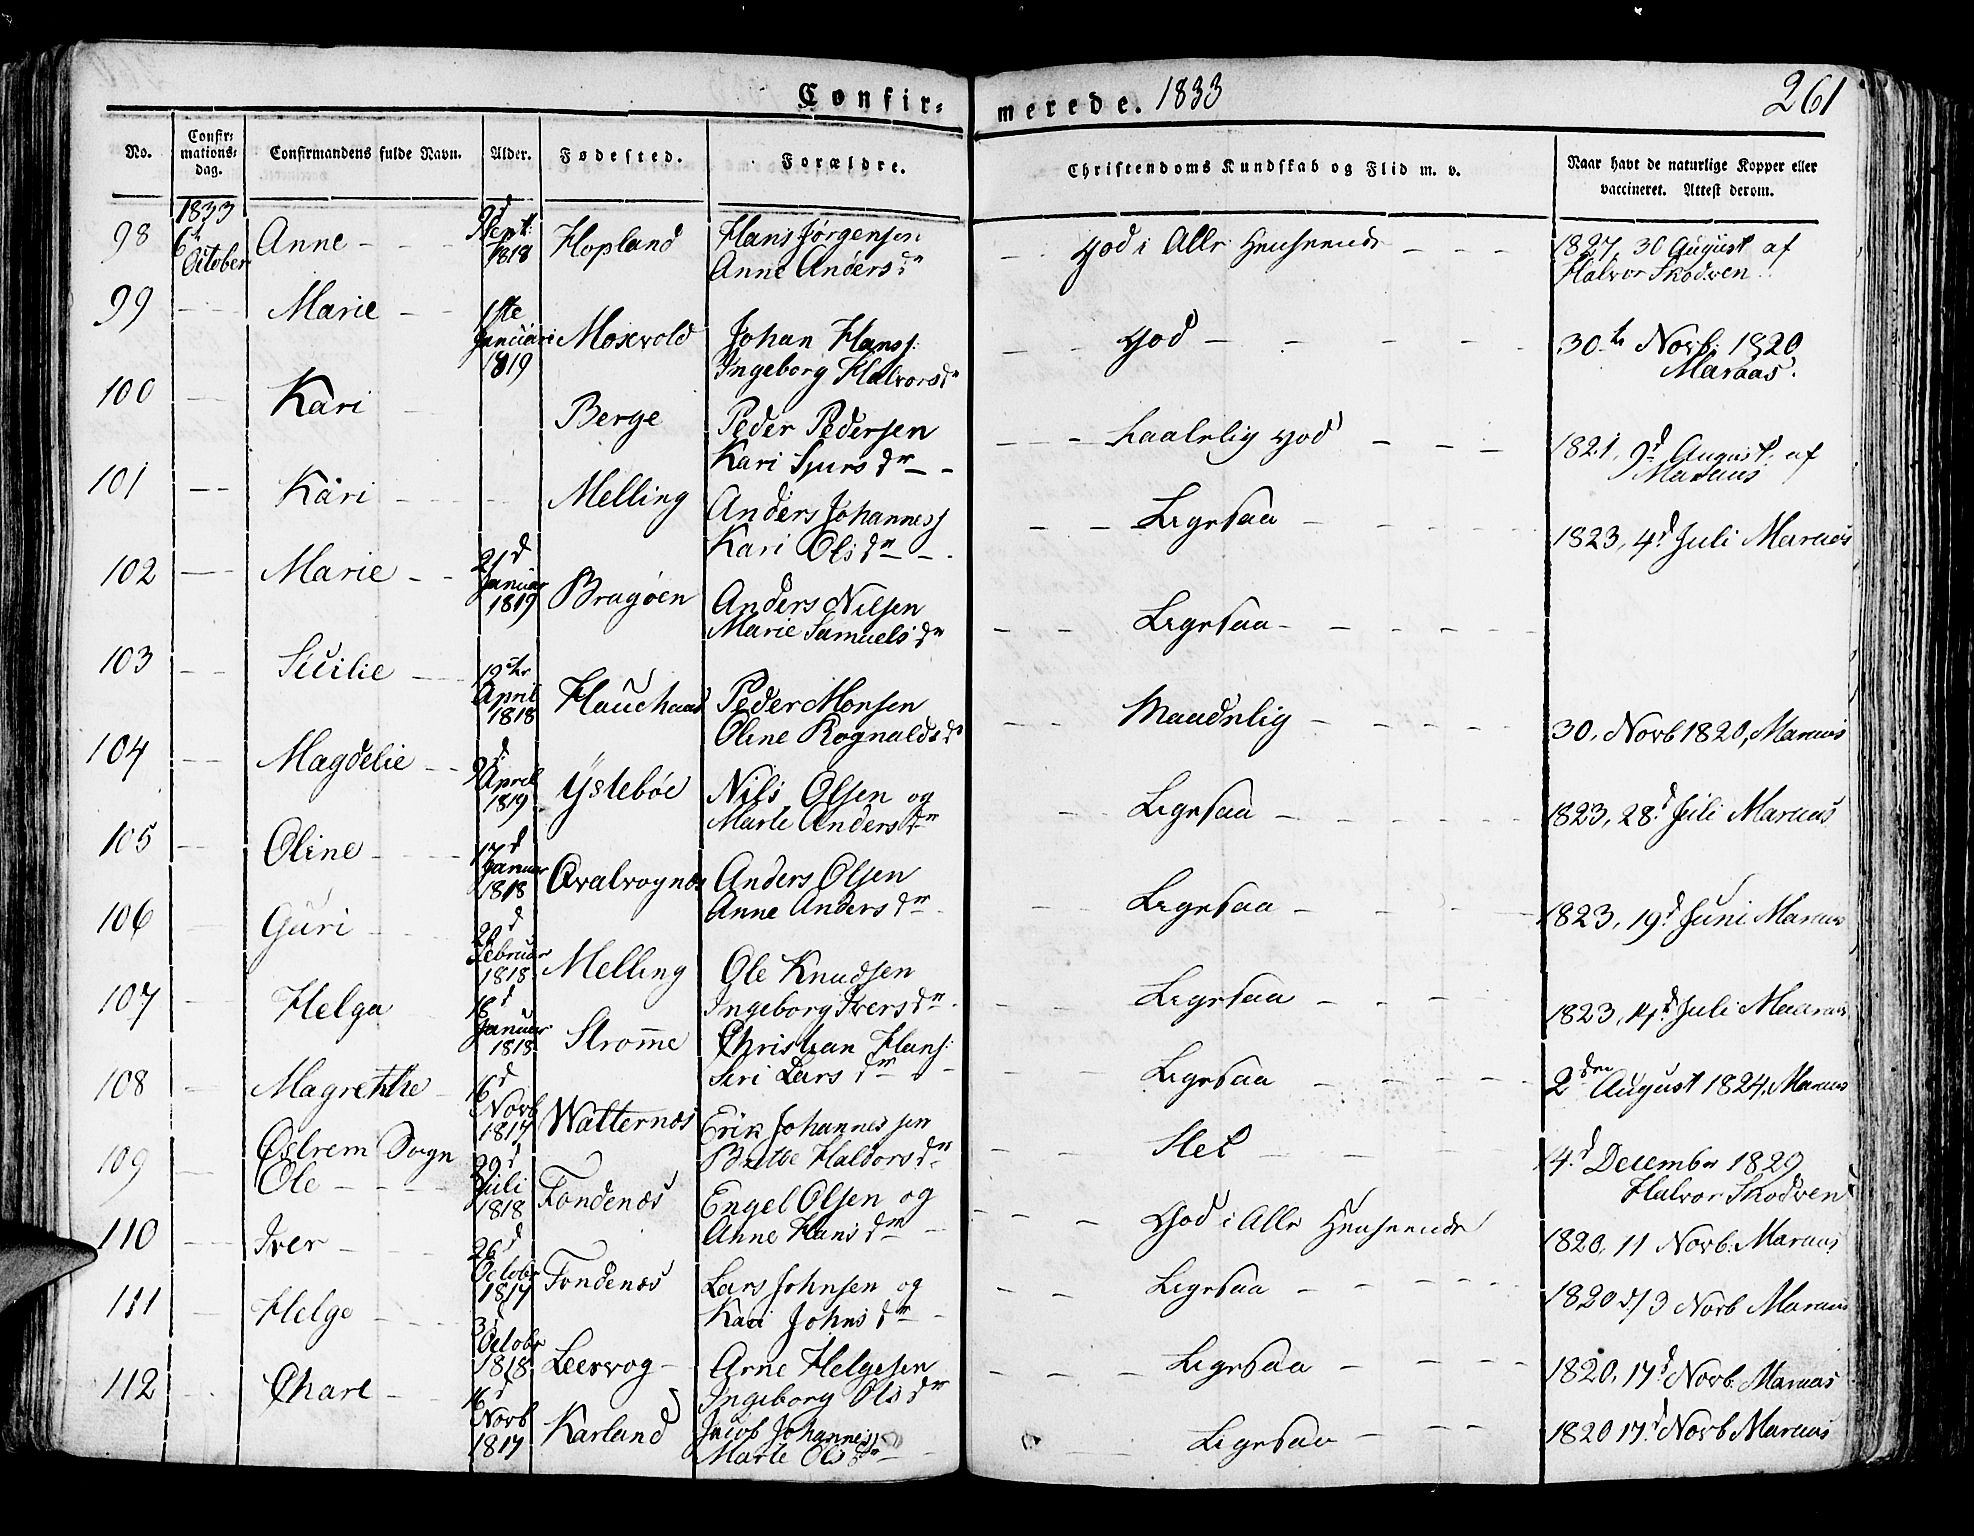 Confir-merede. 1833
261
No.
Confir-
mations-
dag.
Confirmandens fulde Navn.
Alder.
Fødested.
Forældre.
Christendoms Kundskab og Flid m. v.
Naar havt de naturlige Kopper eller
vaccineret. Attest derom.
1833
98 6te October Anne - - - 9d Sept: 1818 Hopland Hans Jørgensen
Anne Andersdr
- - God i Alle Henseende - - -
1827, 30 August af
Halvor Skodven
99 - - Marie - - 1ste Januari 1819 Moxvold Johan Hanss:
Ingeborg Halvorsdr
- - God - - - - -
30te Novb. 1820
Maraas.
100 - - Kari - Berge Peder Pedersen
Kari Sjursdr - -
- - - Taalelig God - - -
1821, 9d August, af
Maraas
101 - - Kari - - - Melling Anders Johanness
Kari Olsdr - -
- - Ligesaa - - - -
1823, 4d Juli Maraas
102 - - Marie - - 21d Januar 1819 Bragøen Anders Nilsen
Marie Samuelsdr
- - Ligesaa - - - - -
103 - - Sicilie - - 19de April 1818 Hauchaas Peder Monsen
Oline Rognaldsdr
- - Maadelig - - - -
30. Novb 1820, Maraas
104 - - Magdelie - - 9d April 1819 Ystebøe Nils Olsen og
Marte Andersdr
- - Ligesaa - - - - -
1823, 28d Juli Maraas
105 - - Oline - - - 17d Januar 1818 Qvalvognæs Anders Olsen
Anne Andersdr
- - Ligesaa - - - -
1823, 19d Juni Maraas
106 - Guri - - 20d Februar 1818 Melling Ole Knudsen
Ingeborg Iversdr -
- - Ligesaa - - - -
1823, 14d Juli Maaraas
107 - Helga - 18d Januar 1818 Strømme Christian Hans:
Siri Larsdr - -
- - Ligesaa - - - -
2den August 1824, Maraas
108 - Magrethe - 16d Novb 1817 Watternæs Erik Johannessen
Britte Haldorsdr
- - Slet - - -
4d December 1829
Halvor Skodven
Østrem Sogn
109 - Ole - - - 29d Juli 1818 Fondenæs Engel Olsen og
Anne Hansdr -
- - - God i Alle Henseende
1820, 11 Novb. Maraas
110 - - Iver - - - 26d Octobr 1817 Fondenæs Lars Johnsen og
Kari Johnsdr -
- - Ligesaa - - - - -
1820 d/3 Novb Maraas
111 - Helge - - - 3d Octobr 1818 Leervog - Arne Helgesen
Ingeborg Olsdr
- - - Ligesaa - - - -
1820, 17d Novb. Maraas
112 - Charl - - 16d Novb 1817 Karland Jacob Johanness
Marte Olsdr - -
- Ligesaa - -
1820 17d Novb Maraas